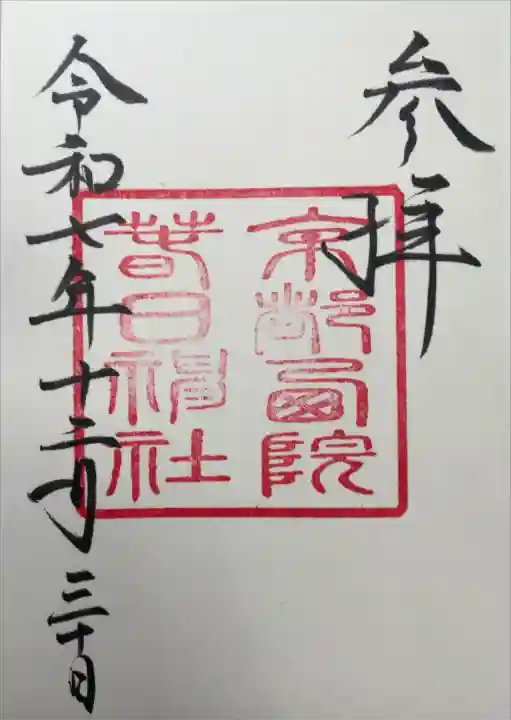 参拝
京都西院
春日神社
令和七年十二月三十日